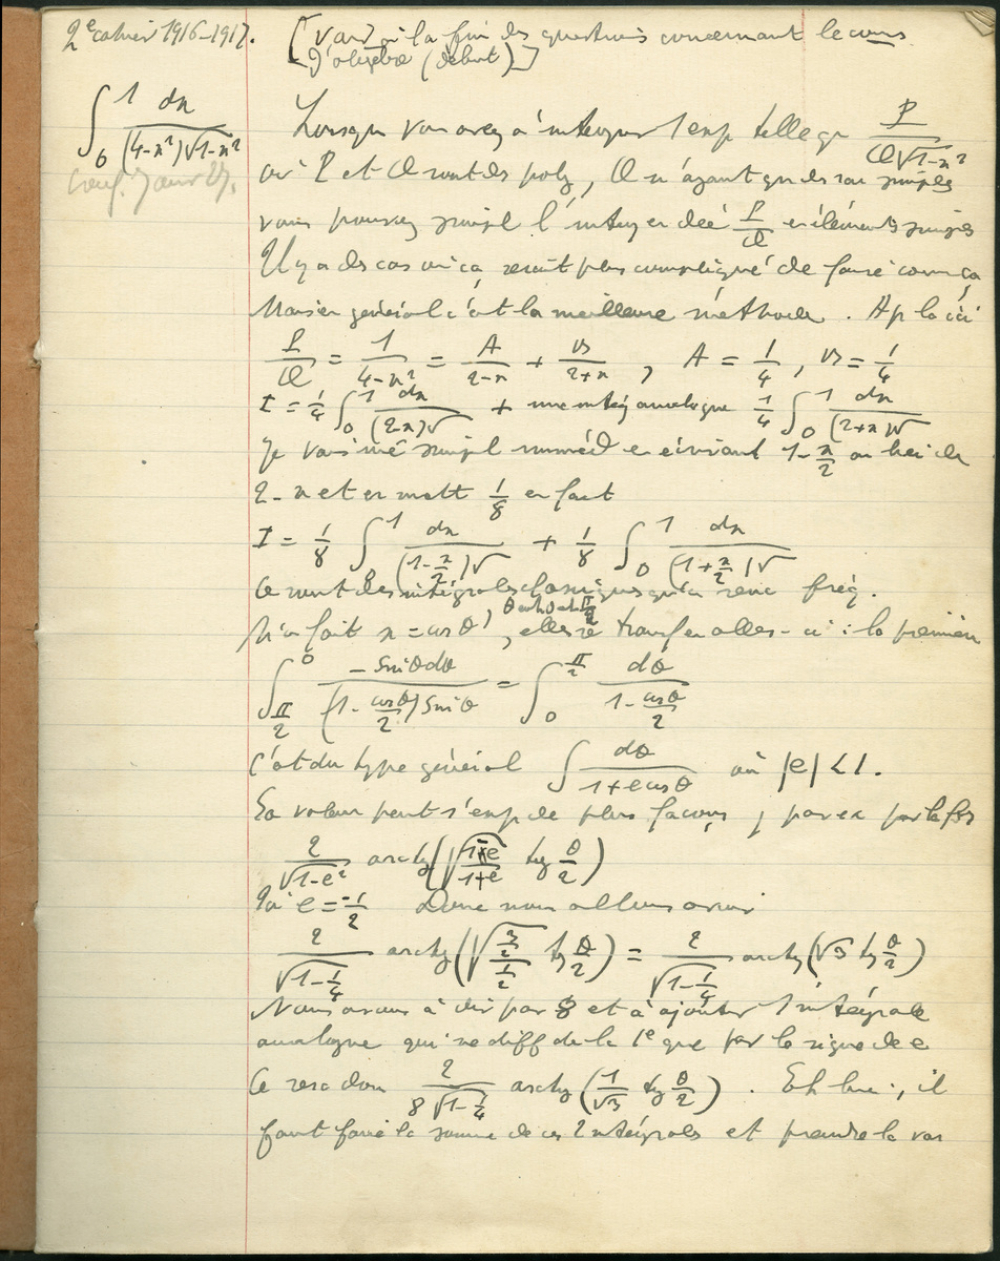 2e cahier 1916-1917. [Voir à la fin des questions concernant le cours
d'algèbre (début)]
∫_0^1 dx/((4-x²)√(1-x²))
Lorsque vous avez à intégrer 1 exp telle que P/(Q√(1-x²))
où P et Q sont des poly, Q n'ayant que des rac simples
vous pouvez simpl l'intég en déc P/Q en éléments simples
Il y a des cas où ça serait plus compliqué de faire comme ça
Mais en général c'est la meilleure méthode. Ap la ici
P/Q = 1/(4-x²) = A/(2-x) + B/(2+x), A = 1/4, B = 1/4
I = 1/4 ∫_0^1 dx/((2-x)√) + une intég analogue 1/4 ∫_0^1 dx/((2+x)√)
Je vais simpl en écrivant 1-x/2 au lieu de
2-x et en mett 1/8 en fact
I = 1/8 ∫_0^1 dx/((1-x/2)√) + 1/8 ∫_0^1 dx/((1+x/2)√)
Ce sont des intégrales classiques qu'on renc fréq.
Si l'on fait x = cos θ, elles se transf en celles-ci : la première
∫_{π/2}^0 -sin θ dθ/((1-cos θ/2) sin θ) = ∫_0^{π/2} dθ/(1-cos θ/2)
C'est du type général ∫ dθ/(1+e cos θ) où |e|<1.
Sa valeur peut s'exp de plus façons, par ex par la f
2/√(1-e²) arctg(√((1-e)/(1+e)) tg θ/2)
Ici e = -1/2 Donc nous allons avoir
2/√(1-1/4) arctg(√((3/2)/(1/2)) tg θ/2) = 2/√(1-1/4) arctg(√3 tg θ/2)
Nous avons à div par 8 et à ajouter 1 intégrale
analogue qui ne diff de la 1e que par le signe de e
Ce sera donc 2/(8√(1-1/4)) arctg(1/√3 tg θ/2). Eh bien, il
faut faire la somme de ces 2 intégrales et prendre la var